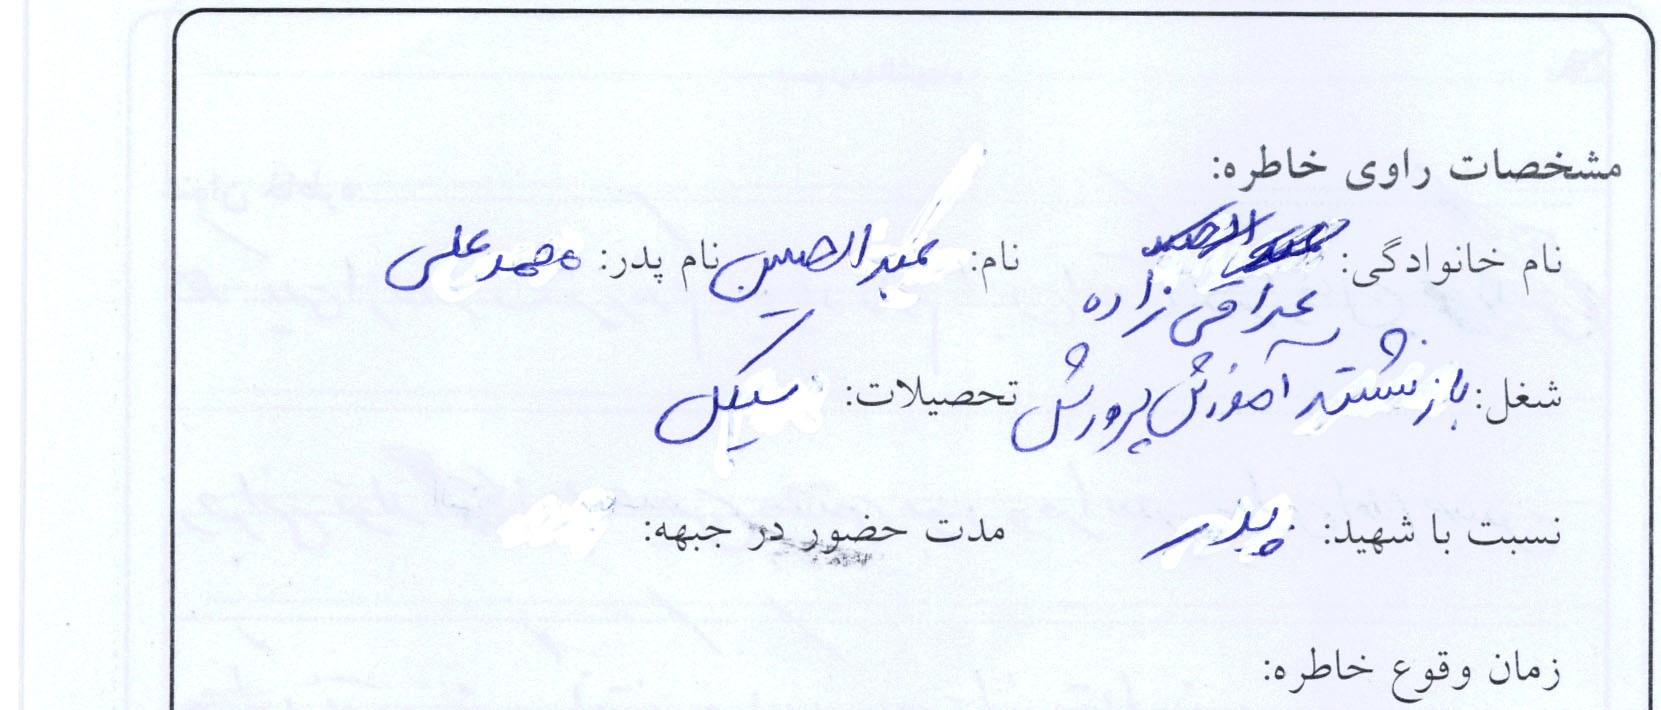 مشخصات راوی خاطره:
نام خانوادگی: عراقی زاده نام: عبدالحسین نام پدر: محمدعلی
شغل: بازنشسته آموزش پرورش تحصیلات: سیکل
نسبت با شهید: پدر مدت حضور در جبهه:
زمان وقوع خاطره: